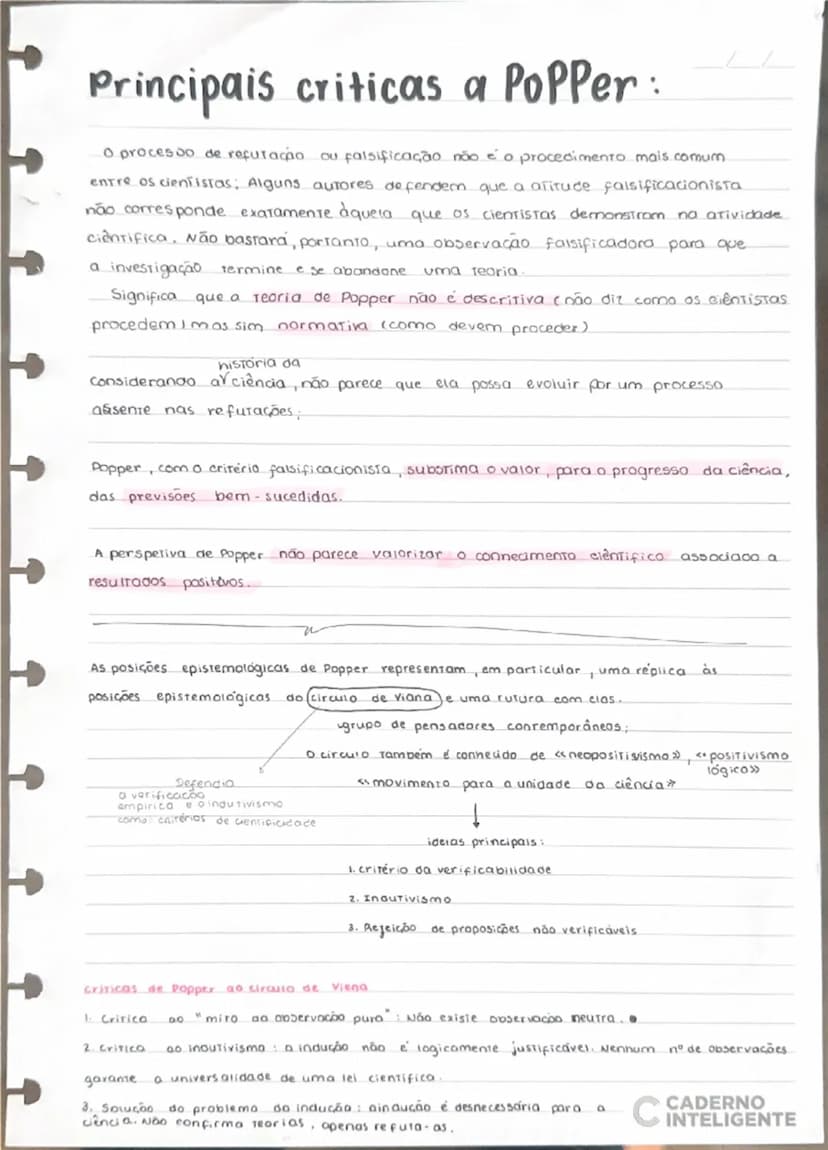 Principais criticas a Popper:
O processo de refutação ou falsificação não é o procedimento mais comum
entre os cientistas; Alguns autores defendem que a atitude falsificacionista
não corresponde exatamente àquela que os cientistas demonstram na atividade
ciêntifica. Não bastará, portanto, uma observação falsificadora para que
a investigação termine e se abandone uma teoria.
Significa que a teoria de Popper não é descritiva (não diz como os ciêntistas
procedem) mas sim normativa (como devem proceder)
história da
Considerando a ciência, não parece que ela possa evoluir por um processo
assente nas refutações;
Popper, com o critério falsificacionista, suborima o valor, para o progresso da ciência,
das previsões bem-sucedidas.
A perspetiva de Popper não parece valorizar o connecimento ciêntifico associado a
resultados positivos.
As posições epistemológicas de Popper representam, em particular, uma réplica às
posições epistemológicas do circulo de Viana e uma rutura com elas.
grupo de pensadores contemporâneos;
O circulo também é conhecido de «neopositivismo», «positivismo
lógico»
«movimento para a unidade da ciência»
Defendia
a verificação
empirica e o indutivismo
como critérios de cientificidade
ideias principais:
1. critério da verificabilidade
2. Indutivismo
3. Rejeicão de proposições não verificáveis
Criticas de Popper ao circulo de Viena
1. Critica ao "mito da observação pura": Não existe observação neutra.
2. Critica ao indutivismo: a indução não é logicamente justificável. Nenhum nº de observações
garante a universalidade de uma lei cientifica.
3. Solução do problema da indução: a indução é desnecessária para a
ciência. Não confirma teorias, apenas refuta-as.
CADERNO
INTELIGENTE